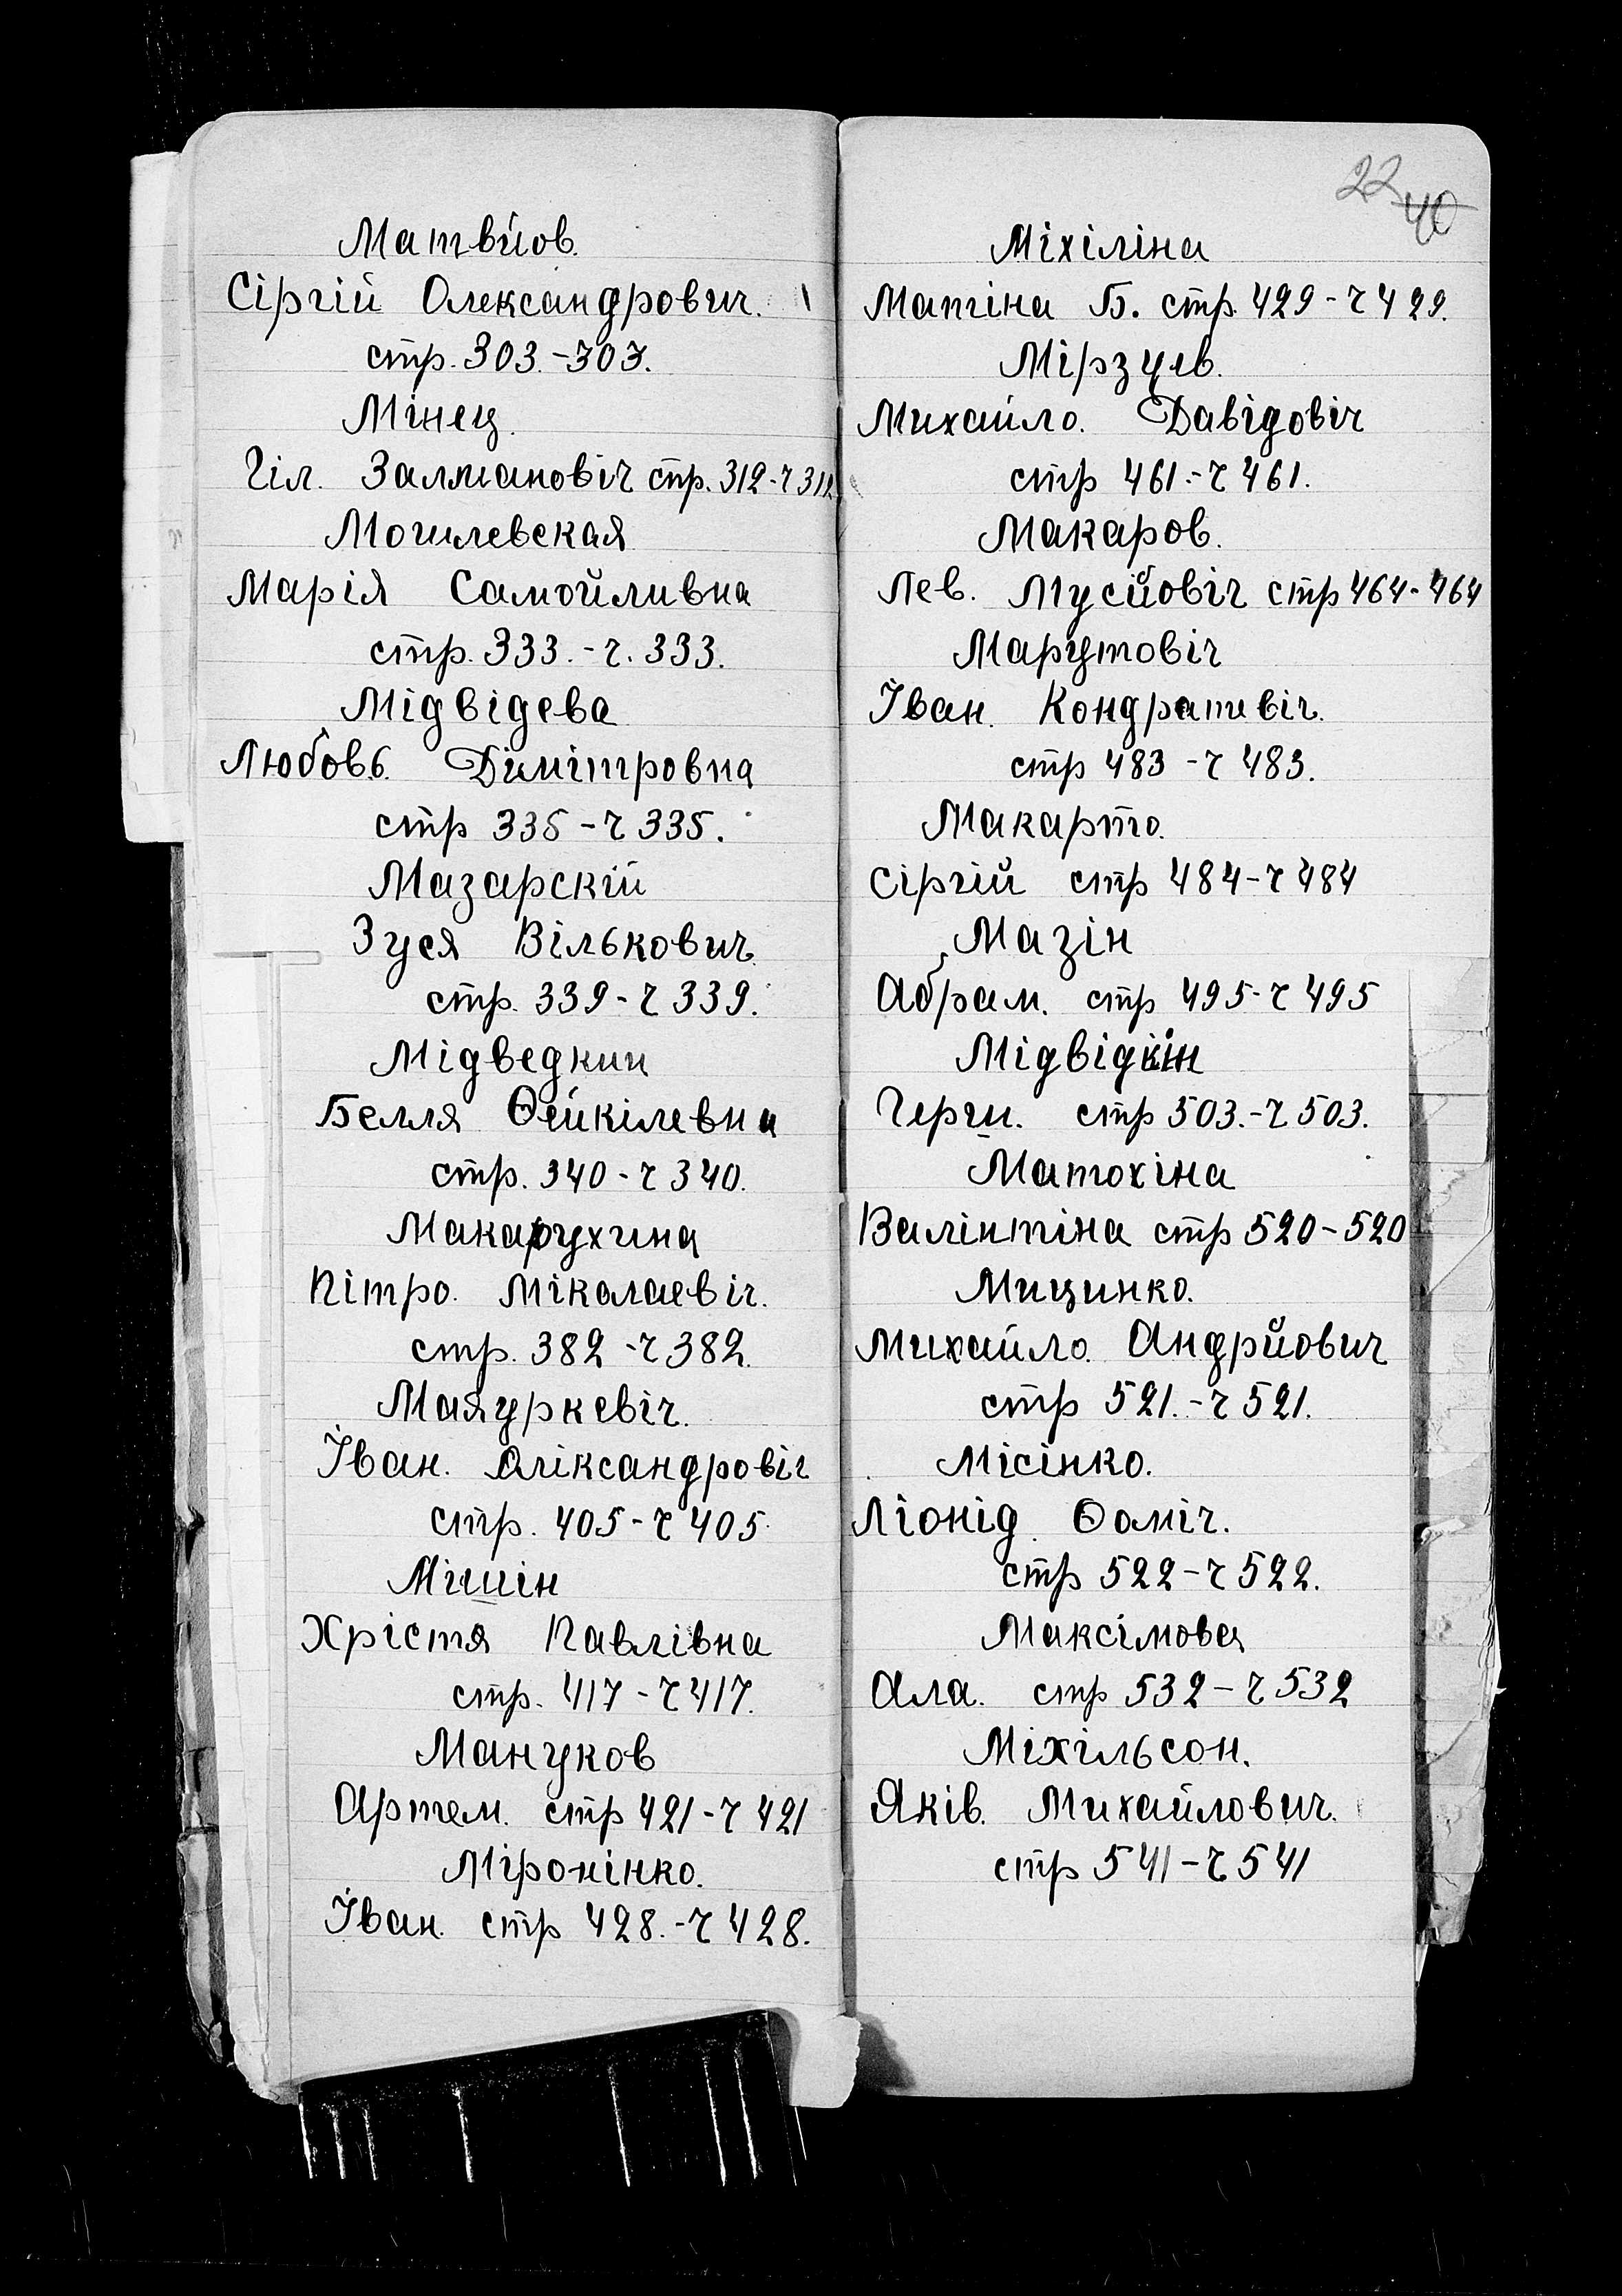 Матвійов.
Сіргій Олександрович.
стр. 303.-303.
Мінец.
Гіл. Залманович стр. 312-ч 312
Могилевская
Марія Самойливна
стр. 333.-ч. 333.
Мідвідева
Любовь. Димітровна
стр 335-ч 335.
Мазарскій
Зуся Вількович
стр. 339-ч 339.
Мідведкин
Белля Ѳейкілевна
стр. 340-ч 340.
Макарухина
Пітро. Міколаєвіч.
стр. 382-ч 382.
Маяуркевіч.
Іван. Оліксандровіч
стр. 405-ч 405.
Мішін
Хрістя Павлівна
стр. 417-ч 417.
Мануков
Артем. стр 421-ч 421
Міронінко.
Іван. стр 428.-ч 428.
22 40
Міхіліна
Б. стр. 429-ч 429.
Мірзуев.
Михайло. Давідовіч
стр 461.-ч 461.
Макаров.
Лев. Мусійовіч стр 464-464
Марутовіч
Іван. Кондратевіч.
стр 483-ч 483.
Макарто.
Сіргій стр 484-ч 484
Мазін
Абрам. стр 495-ч 495
Мідвідкін
Герги. стр 503.-ч 503.
Матохіна
Валінтіна стр 520-520
Мицинко.
Михайло. Андрійович
стр 521.-ч 521.
Місінко.
Ліонід. Ѳоміч.
стр 522-ч 522.
Максімова
Ала. стр 532-ч 532
Міхільсон.
Яків. Михайлович.
стр 541-ч 541